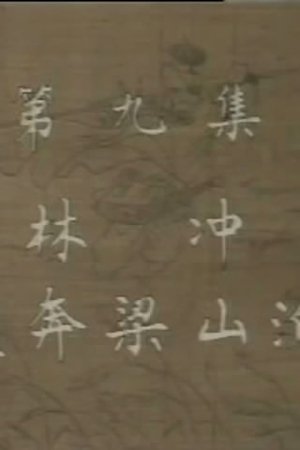 第九集
林冲
奔梁山